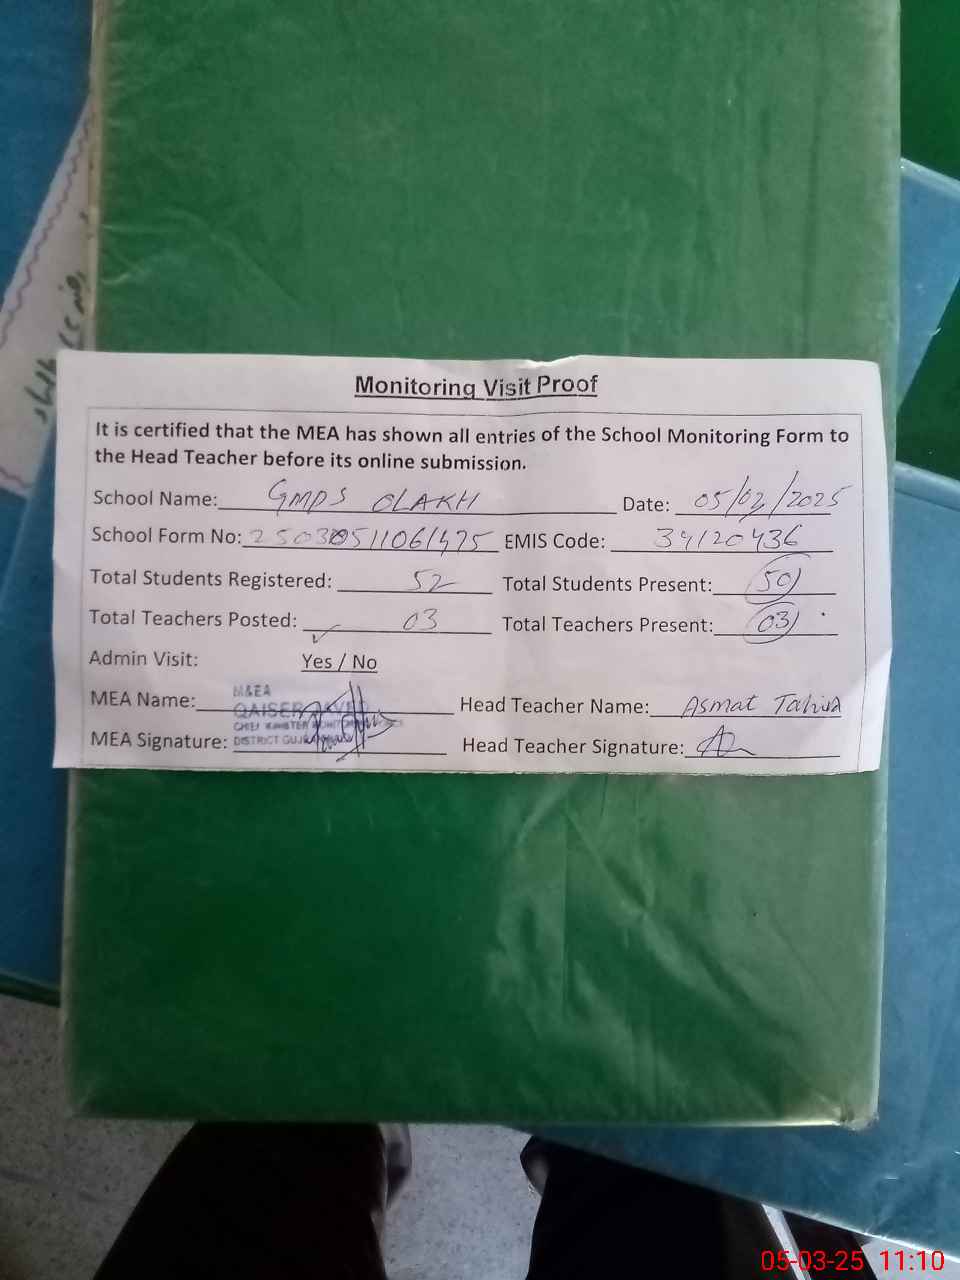 Monitoring Visit Proof
It is certified that the MEA has shown all entries of the School Monitoring Form to
the Head Teacher before its online submission.
School Name: GMPS OLAKH Date: 05/03/2025
School Form No: 25030511061475 EMIS Code: 34120436
Total Students Registered: 52 Total Students Present: 50
Total Teachers Posted: 03 Total Teachers Present: 03
Admin Visit: Yes / No
M&EA
MEA Name: QAISER Head Teacher Name: Asmat Tahira
CHIEF MINISTER
MEA Signature: DISTRICT Head Teacher Signature:
05-03-25 11:10